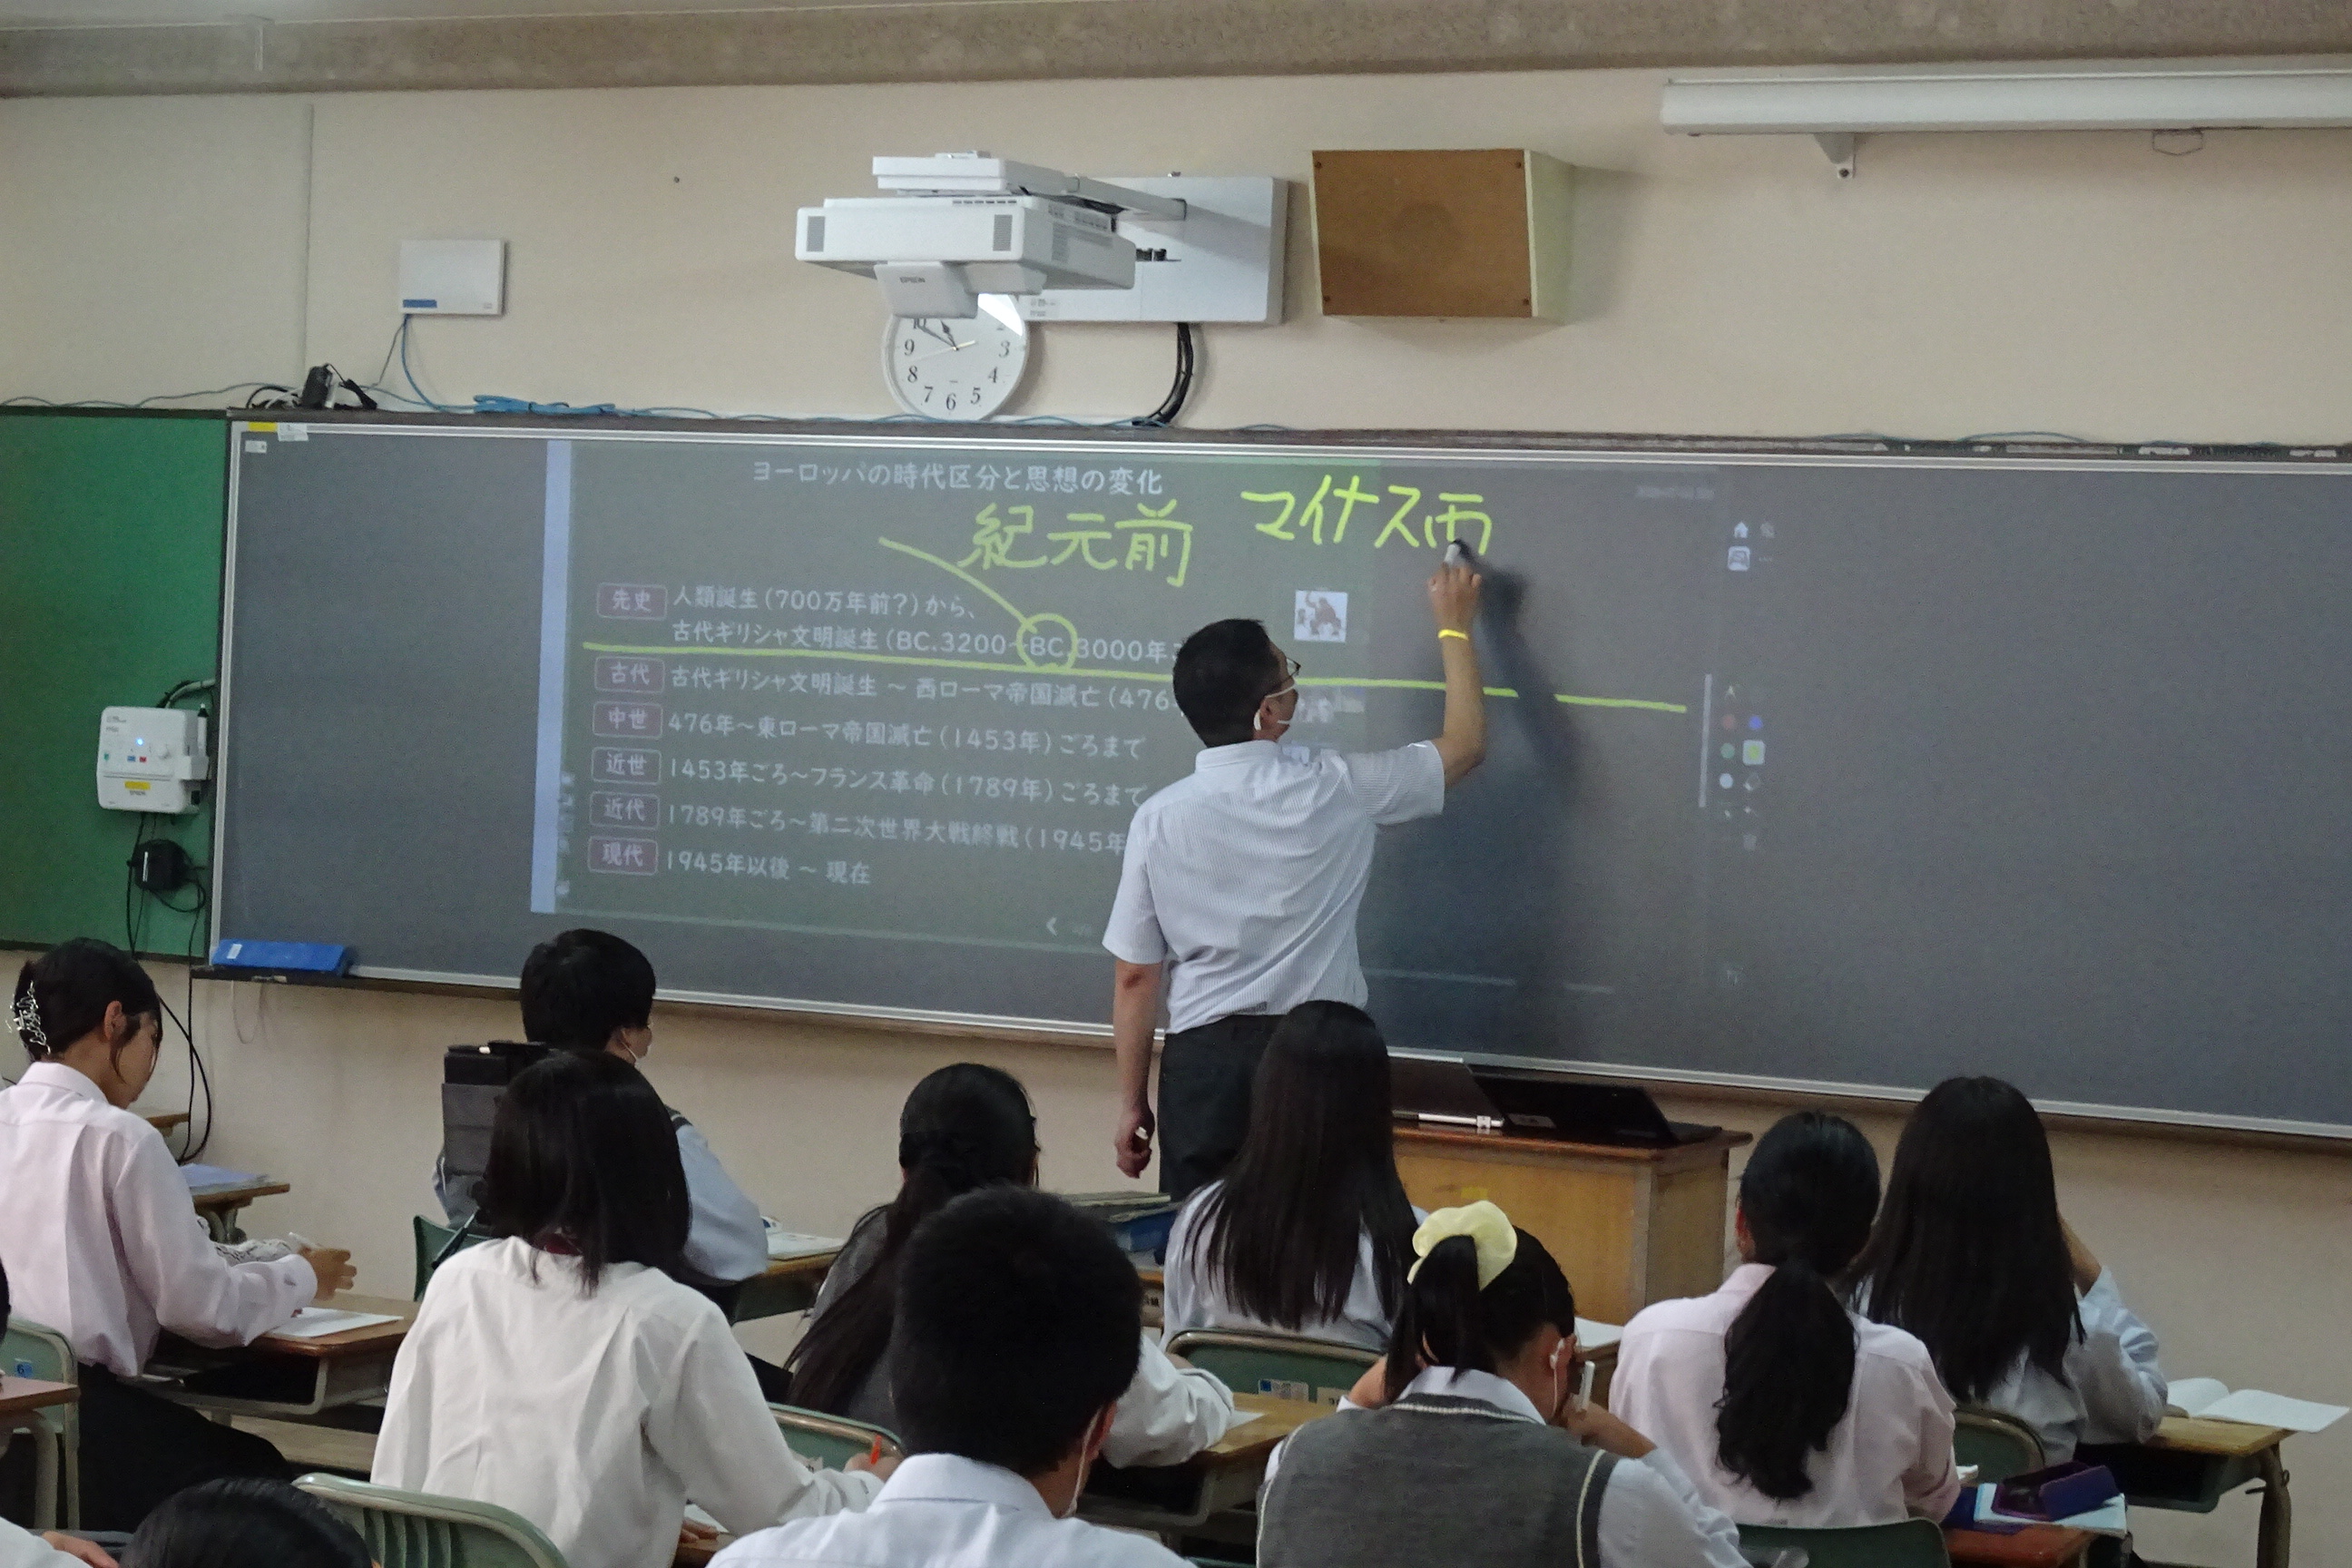 ヨーロッパの時代区分と思想の変化
紀元前 マイナス
先史 人類誕生(700万年前?)から、
古代ギリシャ文明誕生(BC.3200~BC.3000年
古代 古代ギリシャ文明誕生 ~ 西ローマ帝国滅亡(476
中世 476年~東ローマ帝国滅亡(1453年)ごろまで
近世 1453年ごろ~フランス革命(1789年)ごろまで
近代 1789年ごろ~第二次世界大戦終戦(1945年
現代 1945年以後 ~ 現在
EPSON
10
9
8
7
6
5
4
3